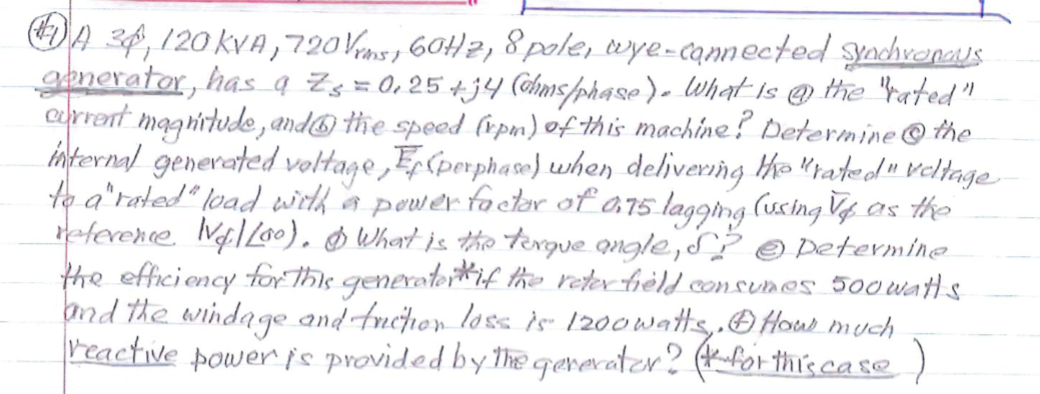 #1 A 3ϕ, 120 KVA, 720 Vrms, 60Hz, 8 pole, wye-connected synchronous
generator, has a Zs = 0.25 + j4 (ohms/phase). What is ⓐ the "rated"
current magnitude, and ⓑ the speed (rpm) of this machine? Determine ⓒ the
internal generated voltage, Ēf (per phase) when delivering the "rated" voltage
to a "rated" load with a power factor of 0.75 lagging (using V̄ϕ as the
reference |Vϕ|∠0°). ⓓ What is the torque angle, δ? ⓔ Determine
the efficiency for this generator * if the rotor field consumes 500 watts
and the windage and friction loss is 1200 watts. ⓕ How much
reactive power is provided by the generator? (* for this case)